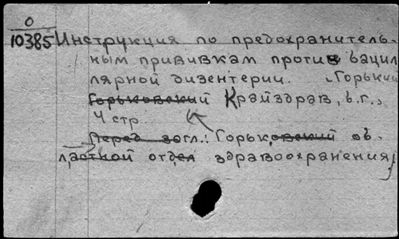 0
10385 Инструкция по предохранитель-
ным прививкам против бацил
лярной дизентерии. Горький
Горьковский Крайздрав, б.г.,
4 стр.
Перед загл.: Горьковский об-
ластной отдел здравоохранения